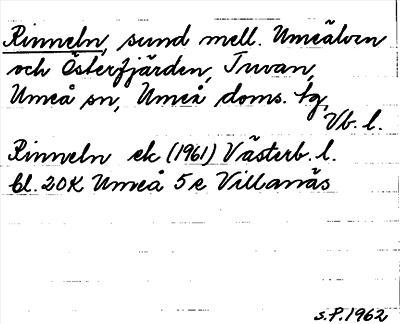 Rinneln, sund mell. Umeälven
och Österfjärden, Tuvan,
Umeå sn, Umeå doms. tg,
Vb. l.
Rinneln ek (1961) Västerb. l.
bl. 20K Umeå 5e Villanäs
S.P. 1962